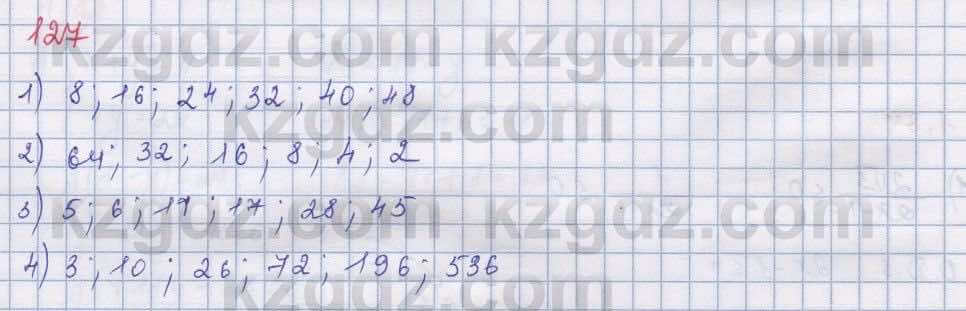 kzgdz.com kzgdz.com
127
1) 8; 16; 24; 32; 40; 48
kzgdz.com
2) 64; 32; 16; 8; 4; 2
3) 5; 6; 11; 17; 28; 45
kzgdz.com kzgdz.com
4) 3; 10; 26; 72; 196; 536
kzgdz.com